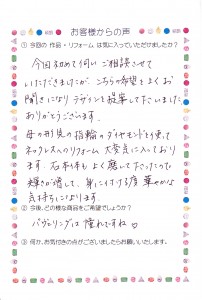 お客様からの声
① 今回の作品・リフォームは気に入っていただけましたか?
今回初めて伺いご相談させて
いただきましたが、こちらの希望をよくお
聞きになりデザインを提案して下さいました
ありがとうございます。
母の形見の指輪のダイヤモンドを使って
ネックレスのリフォーム 大変気に入っており
ます。石本体もよく磨いて下さったので
輝きが増して、身に付ける度 華やかな
気持ちになります
② 今後、どの様な商品をご希望でしょうか?
パヴェリングは憧れですね♡
③ 何か、お気付きの点がございましたらお願いいたします。